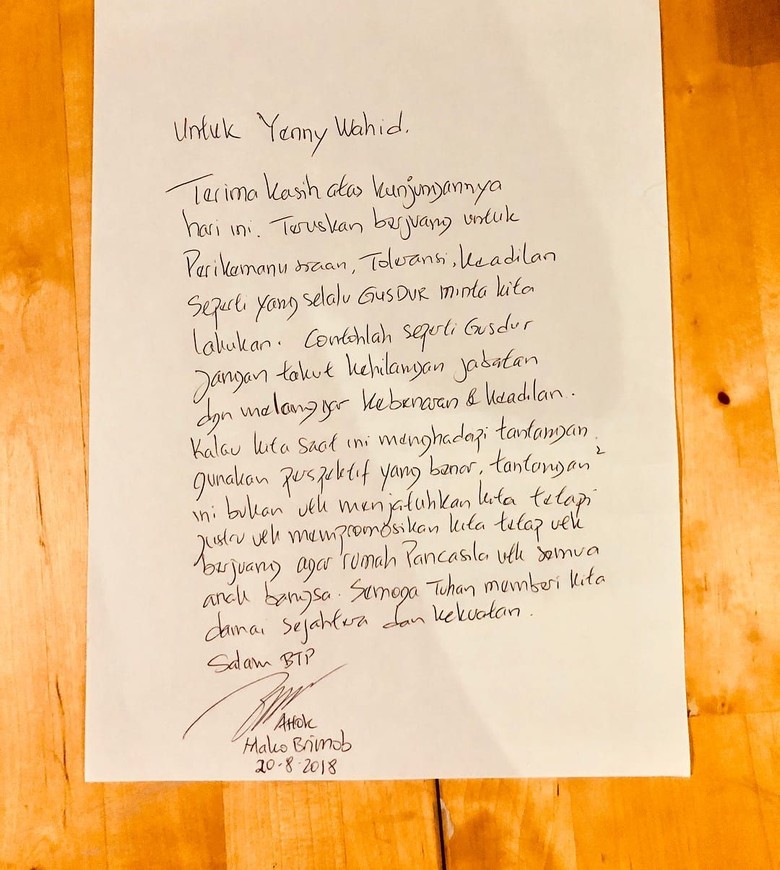 Untuk Yenny Wahid.
Terima kasih atas kunjungannya
hari ini. Teruskan berjuang untuk
Perikemanusiaan, Toleransi, keadilan
seperti yang selalu GUSDUR minta kita
lakukan. Contohlah seperti Gusdur
jangan takut kehilangan jabatan
dgn melanggar kebenaran & keadilan.
Kalau kita saat ini menghadapi tantangan,
gunakan perspektif yang benar, tantangan²
ini bukan utk menjatuhkan kita tetapi
justru utk mempromosikan kita tetap utk
berjuang agar rumah Pancasila utk semua
anak bangsa. Semoga Tuhan memberi kita
damai sejahtera dan kekuatan.
Salam BTP
Ahok
Mako Brimob
20-8-2018